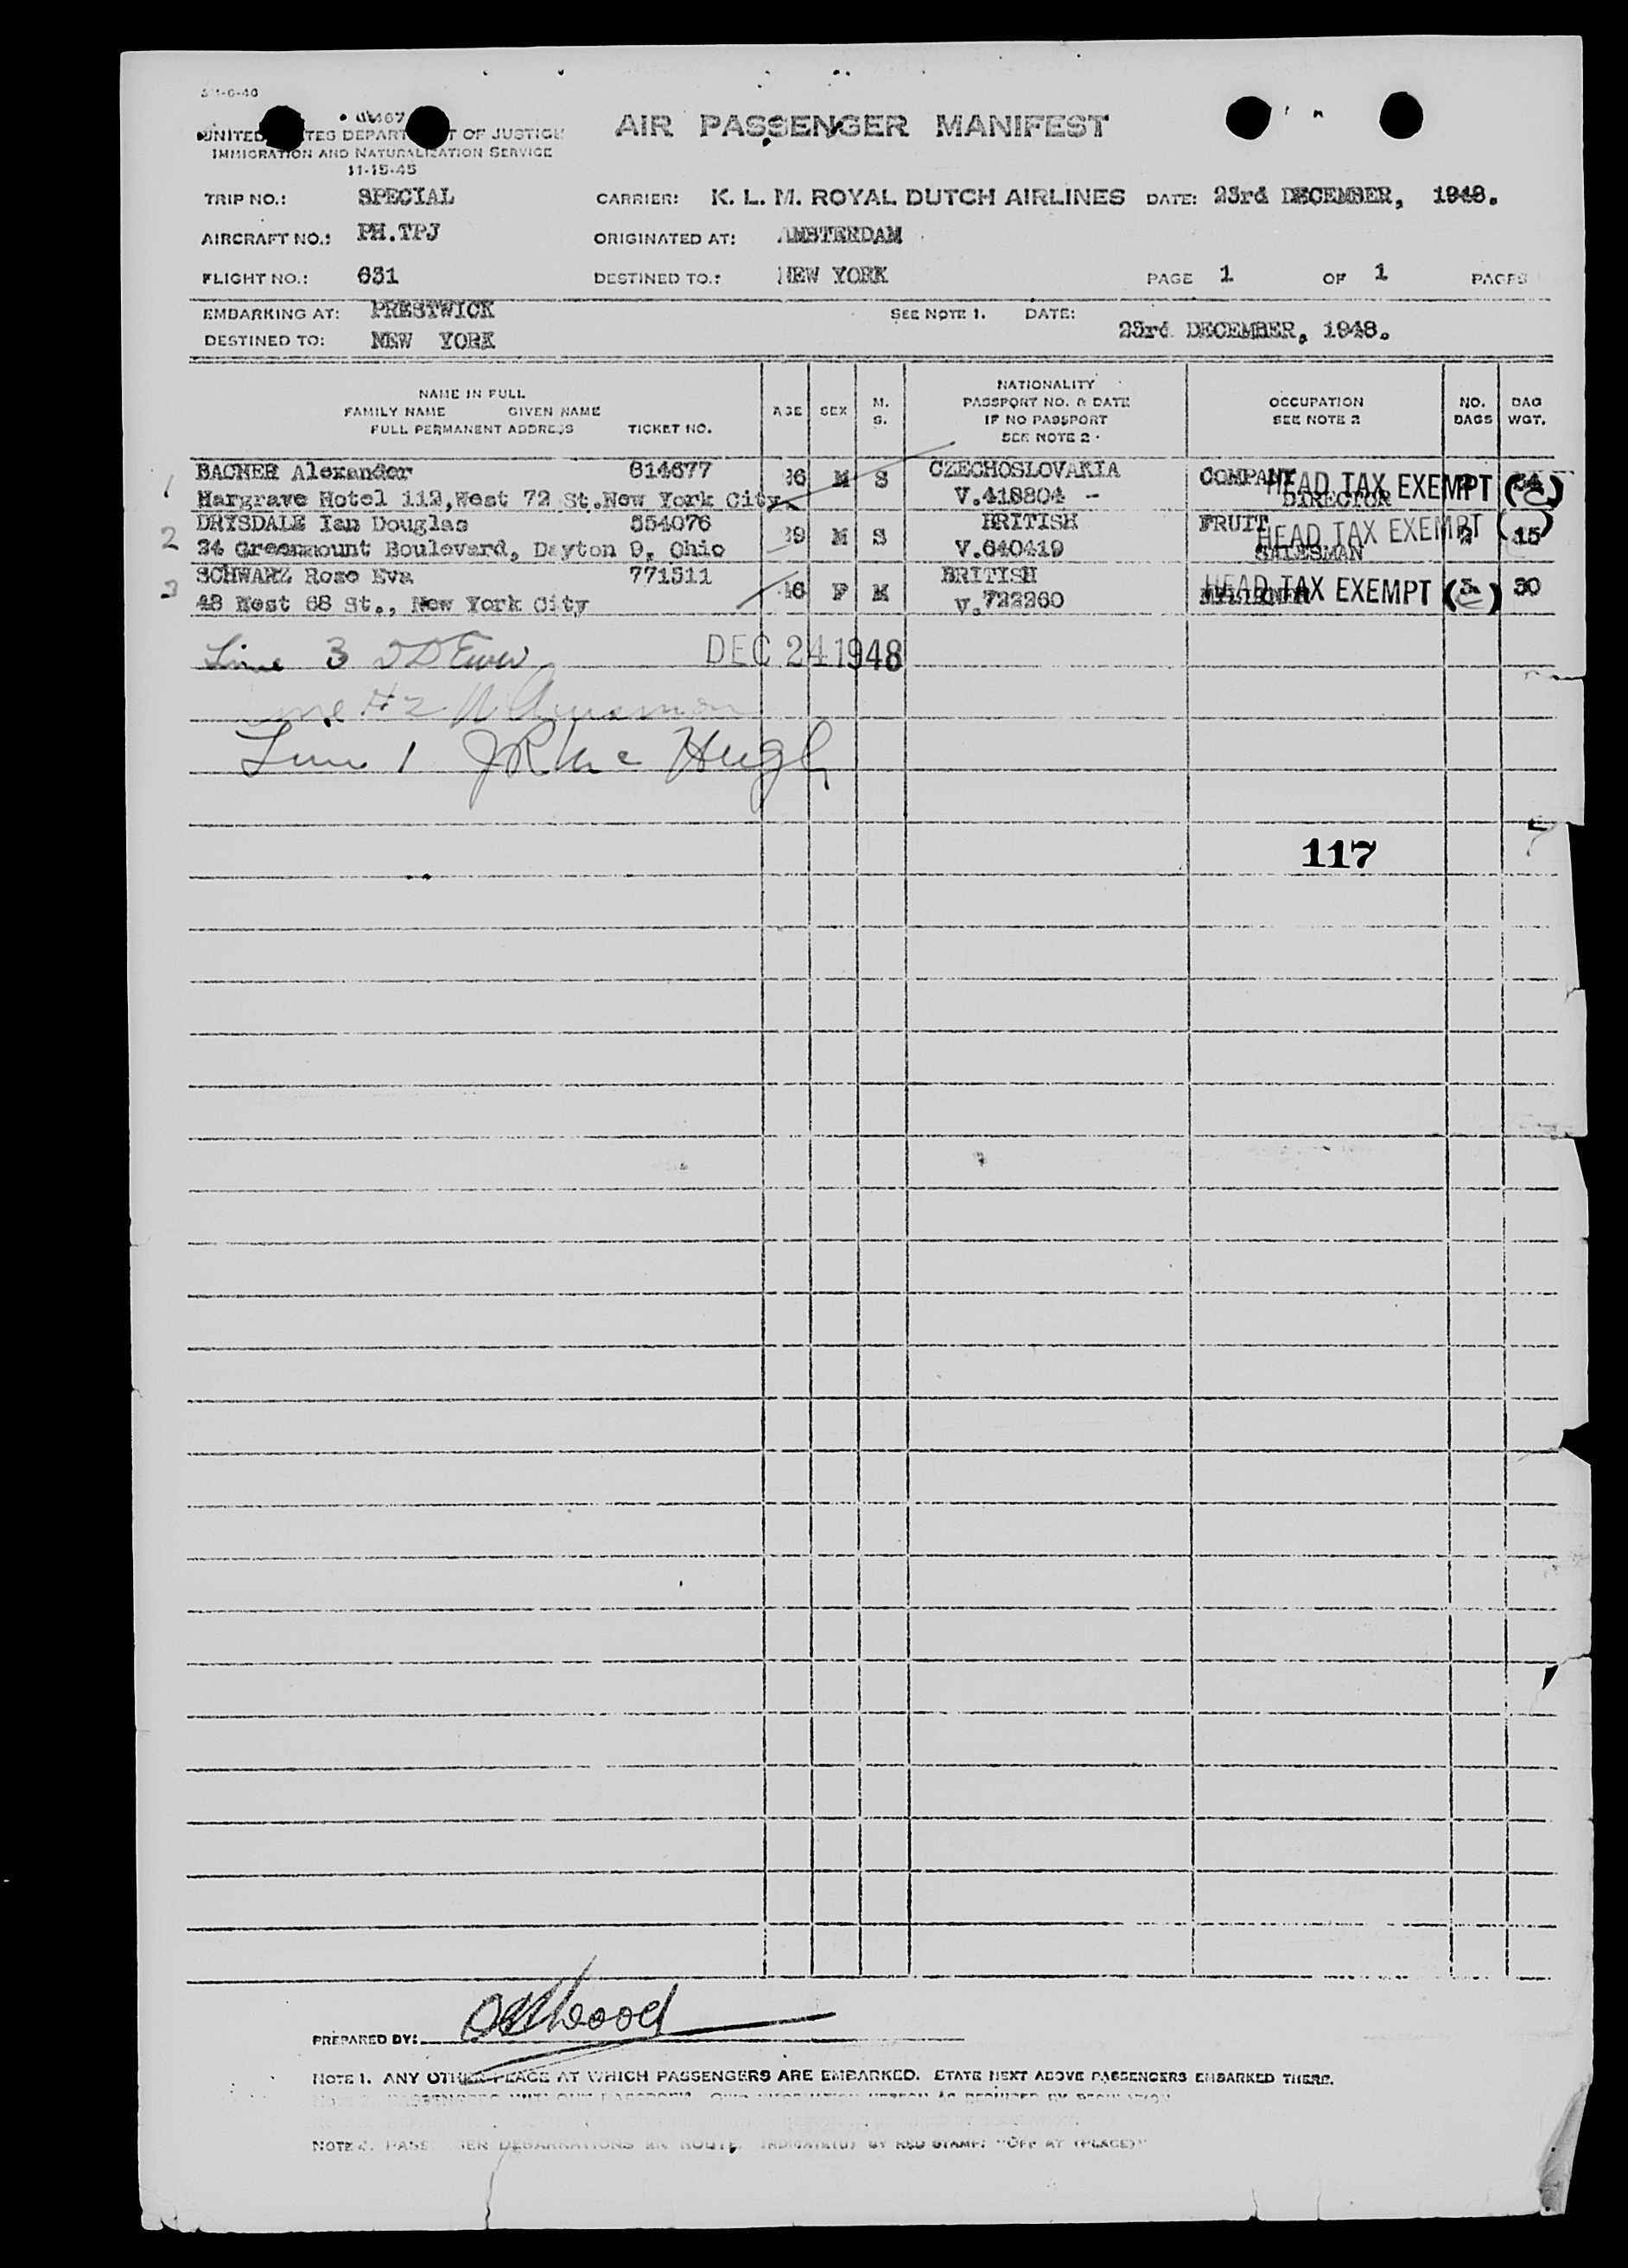 AIR PASSENGER MANIFEST
OF JUSTICE
IMMIGRATION AND NATURALIZATION SERVICE
11-15-45
TRIP NO.: SPECIAL CARRIER: K. L. M. ROYAL DUTCH AIRLINES DATE: 23rd DECEMBER, 1948.
AIRCRAFT NO.: PH.TPJ ORIGINATED AT: AMSTERDAM
FLIGHT NO.: 631 DESTINED TO.: NEW YORK PAGE 1 OF 1 PAGES
EMBARKING AT: PRESTWICK SEE NOTE 1. DATE: 23rd DECEMBER, 1948.
DESTINED TO: NEW YORK
NAME IN FULL
FAMILY NAME GIVEN NAME
FULL PERMANENT ADDRESS TICKET NO. AGE SEX M. S. NATIONALITY PASSPORT NO. & DATE IF NO PASSPORT SEE NOTE 2 OCCUPATION SEE NOTE 2 NO. BAGS BAG WGT.
1 BACHER Alexander 814677 M S CZECHOSLOVAKIA COMPANY HEAD TAX EXEMPT
Hargrave Hotel 112, West 72 St. New York City V.418804 - DIRECTOR
2 DRYSDALE Ian Douglas 554076 M S BRITISH FRUIT HEAD TAX EXEMPT 2 15
34 Greenmount Boulevard, Dayton 9, Ohio V.640419 SALESMAN
3 SCHWARZ Rose Eva 771511 46 F M BRITISH HEAD TAX EXEMPT 30
48 West 68 St., New York City V.722260
Line 3 DEC 24 1948
#2
Line 1 J R Mc Hugh
117
PREPARED BY:
NOTE 1. ANY OTHER PLACE AT WHICH PASSENGERS ARE EMBARKED. STATE NEXT ABOVE PASSENGERS EMBARKED THERE.
BY RED STAMP: "OFF AT (PLACE)"